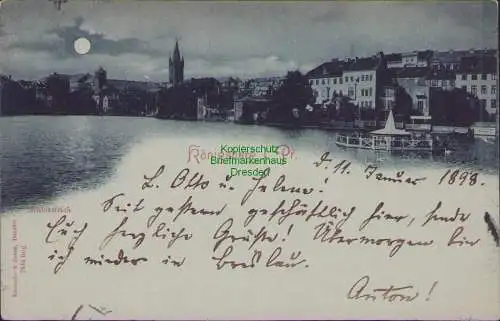 Königsberg i. Pr.
Kopierschutz
Briefmarkenhaus
Dresden
d. 11. Januar 1898.
Schlossteich
L. Otto u. Helene!
Seit gestern geschäftlich hier, sende
Euch herzliche Grüße! Übermorgen bin
ich wieder in Breslau.
Anton!